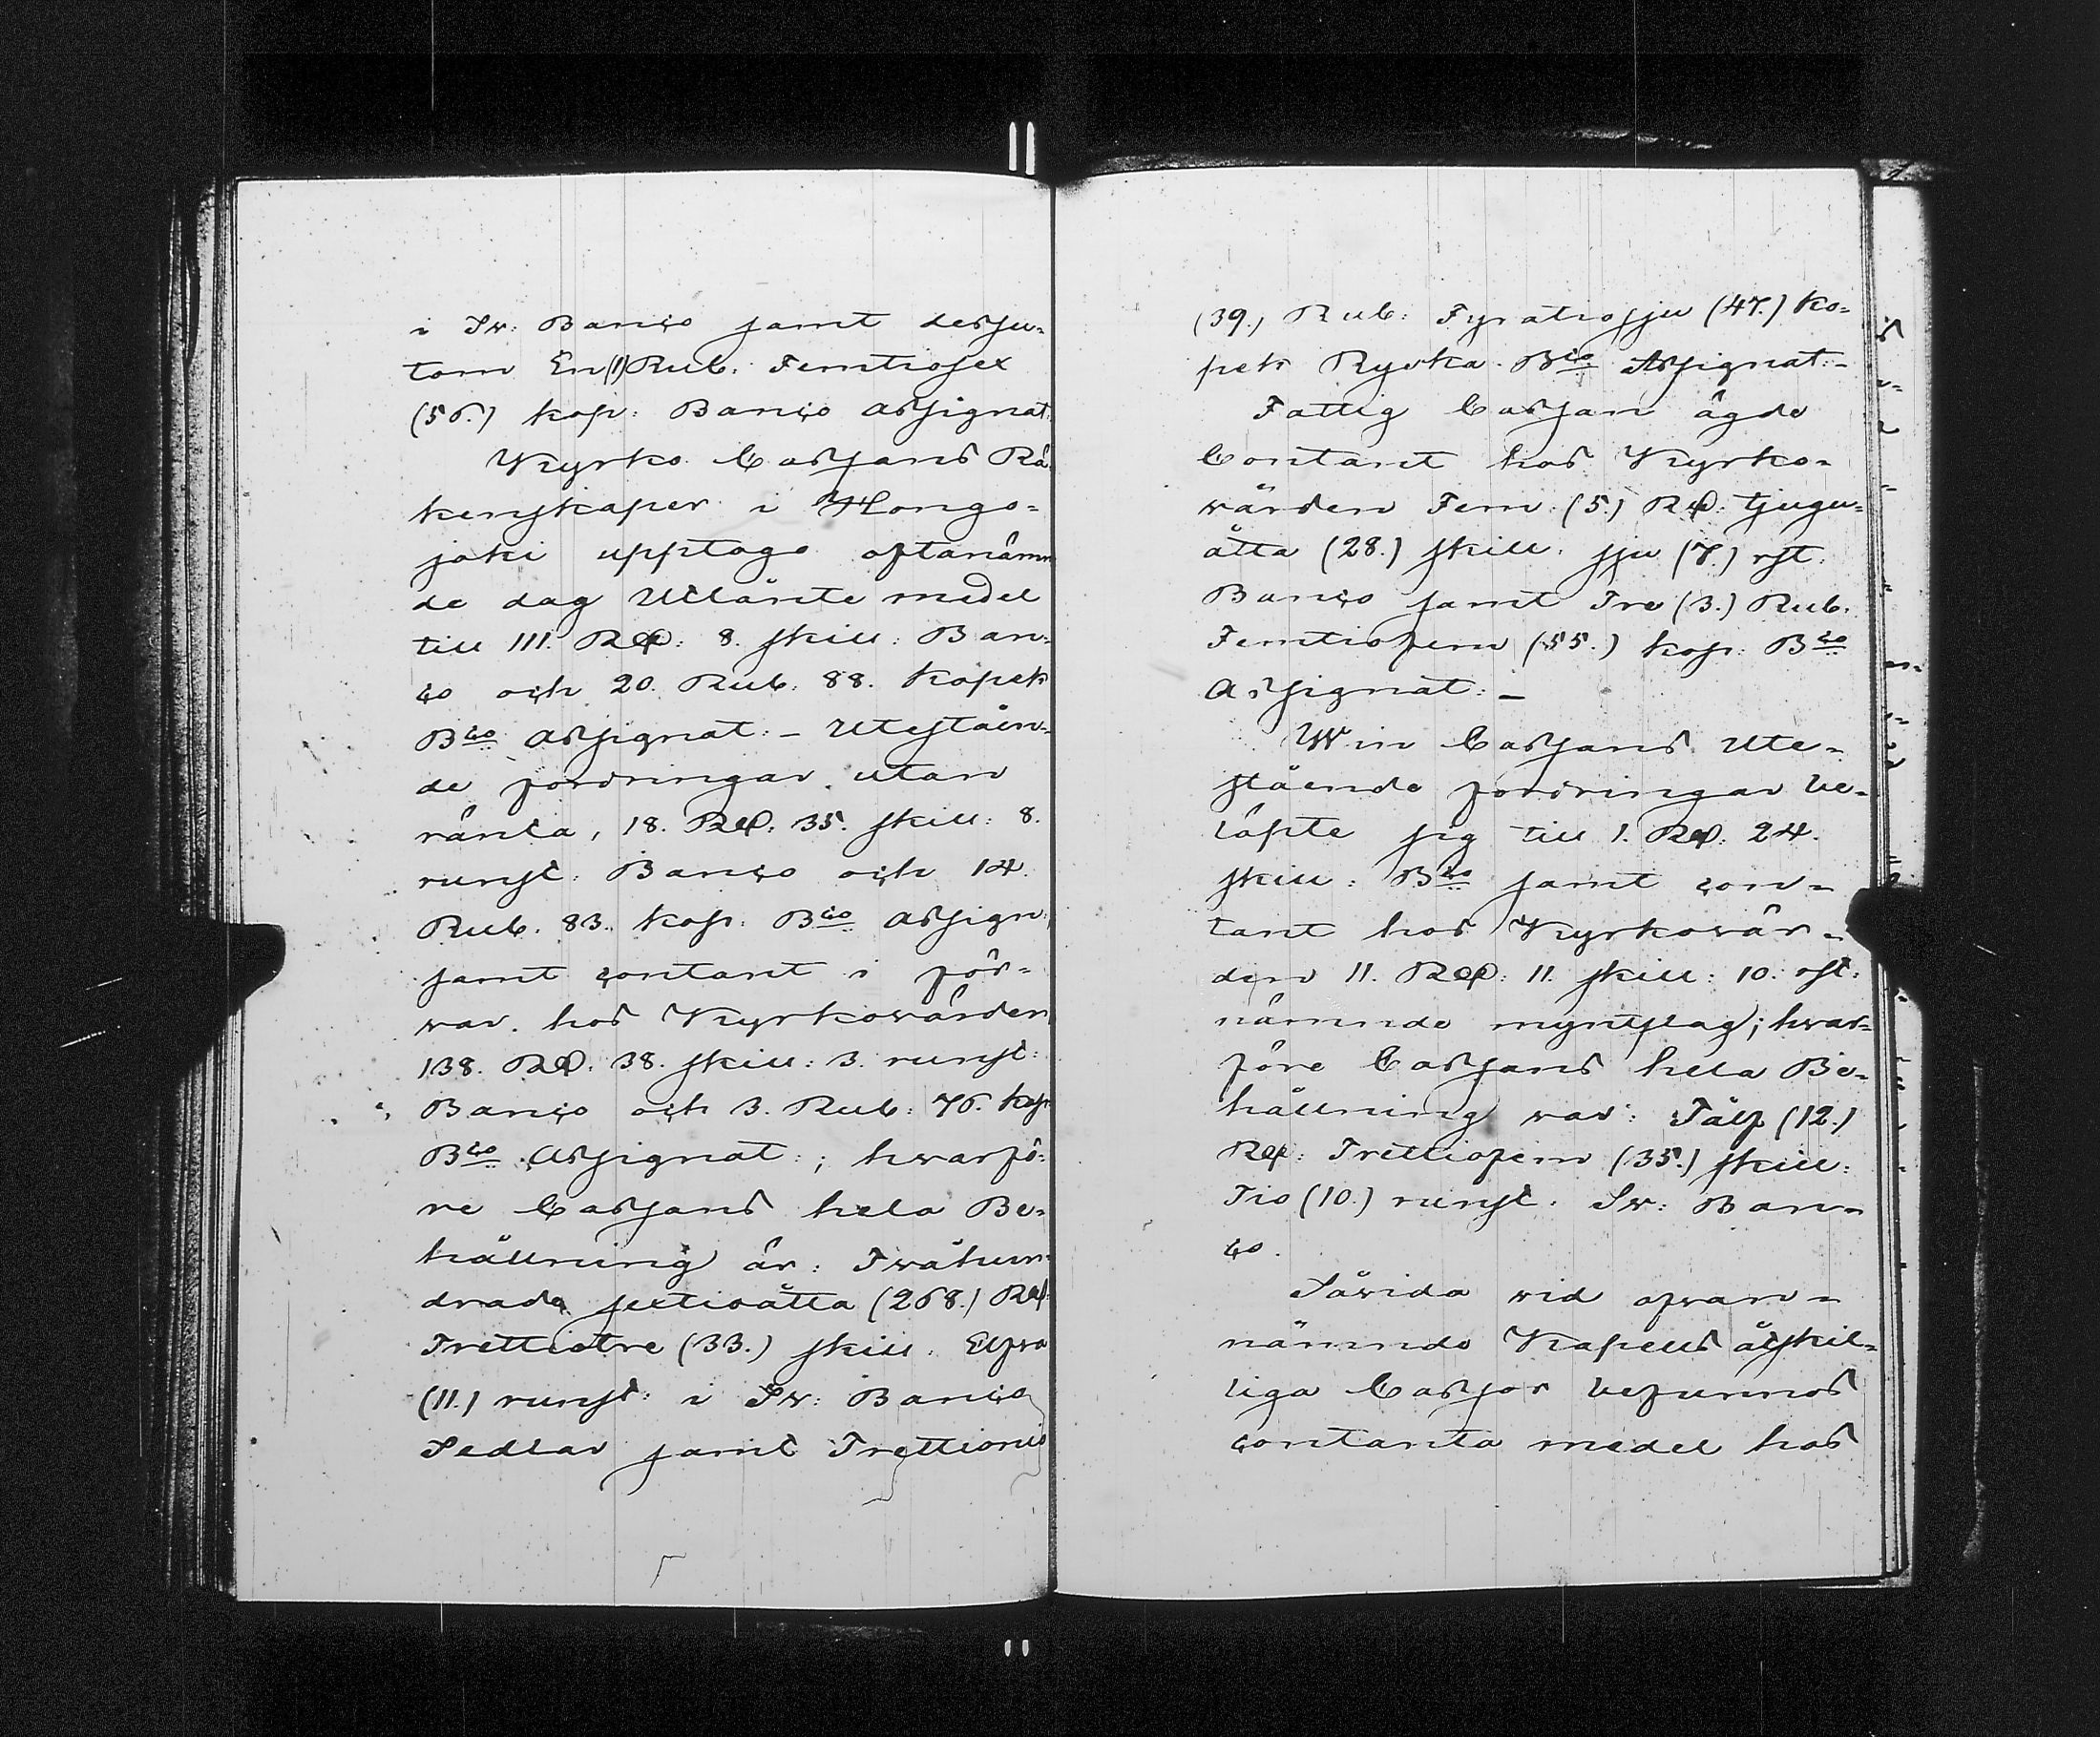 i Sv: Banco samt desju-
tom En (1) Rub. Femtiosex
(56.) kop: Banco Assignat.
Kyrko Cassans Rä-
kenskaper i Hongo-
joki upptogo oftanämn
de dag Utlånte medel
till 111. Rd: 8. skill: Ban-
co och 20. Rub: 88. Kopek
Bco Assignat: – Uteståen-
de fordringar utan
ränta, 18. Rd: 35. skill: 8.
runst: Banco och 14.
Rub. 83. kop: Bco Assign:
samt contant i för-
var hos Kyrkovärden
138. Rd: 38. skill: 3. runst:
Banco och 3. Rub: 76. kop
Bco Assignat:; hvarfö-
re Cassans hela Be-
hållning är: Tvåhun-
drade sextioåtta (268.) Rd:
Trettiotre (33.) skill. Elfva
(11.) runst: i Sv: Banco
Sedlar samt Trettionio
(39.) Rub: Fyratiosju (47.) Ko-
pek Ryska Bco Assignat: –
Fattig Cassan ägde
Contant hos Kyrko-
värden Fem (5.) Rd: tjugu-
åtta (28.) skill. sju (7.) rst.
Banco samt Tre (3.) Rub.
Femtiofem (55.) kop: Bco
Assignat: –
Win Cassans Ute-
stående fordringar be-
löpte sig till 1. Rd: 24.
skill: Bco samt con-
tant hos Kyrkovär-
den 11. Rd: 11. skill: 10. rst:
nämnde myntslag; hvar-
före Cassans hela Be-
hållning var: Tålf (12.)
Rd: Trettiofem (35.) skill:
Tio (10.) runst: Sv: Ban-
co.
Såvida vid ofvan-
nämnde Kapells åtskil-
liga Cassor befunnos
contanta medel hos